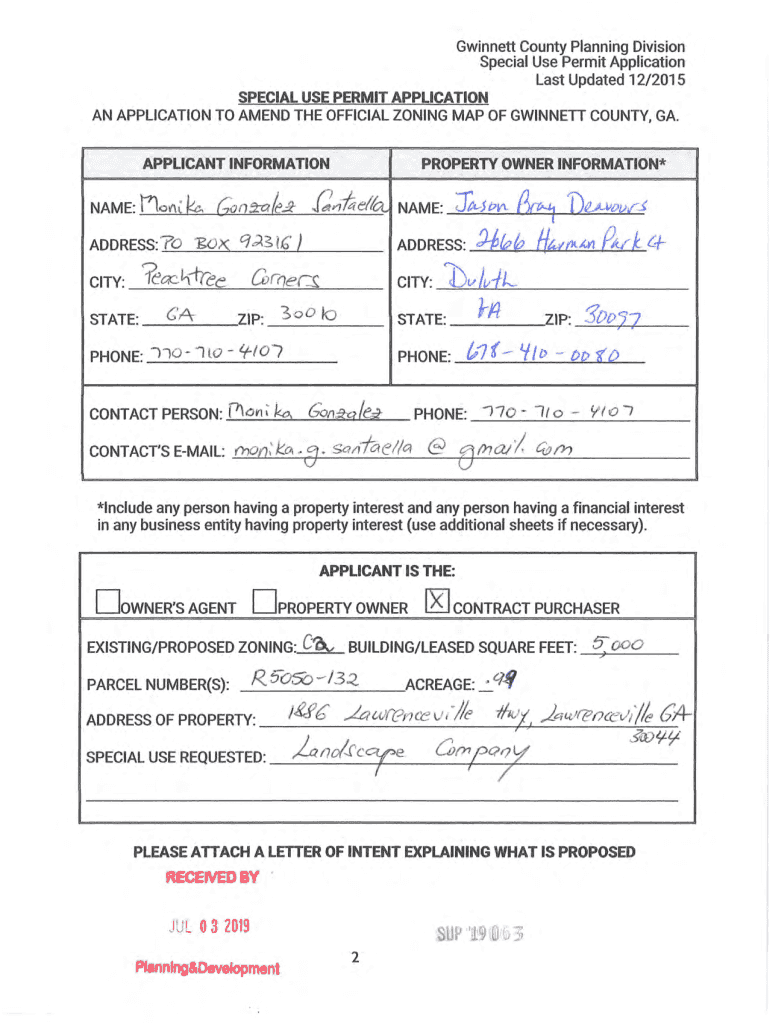 Gwinnett County Planning Division
Special Use Permit Application
Last Updated 12/2015
SPECIAL USE PERMIT APPLICATION
AN APPLICATION TO AMEND THE OFFICIAL ZONING MAP OF GWINNETT COUNTY, GA.
APPLICANT INFORMATION PROPERTY OWNER INFORMATION*
NAME: Monika Gonzalez Santaella NAME: Jason Bray Deavours
ADDRESS: PO BOX 923161 ADDRESS: 2666 Harman Park Ct
CITY: Peachtree Corners CITY: Duluth
STATE: GA ZIP: 30010 STATE: GA ZIP: 30097
PHONE: 770-710-4107 PHONE: 678-410-0080
CONTACT PERSON: Monika Gonzalez PHONE: 770-710-4107
CONTACT'S E-MAIL: monika.g.santaella@gmail.com
*Include any person having a property interest and any person having a financial interest
in any business entity having property interest (use additional sheets if necessary).
APPLICANT IS THE:
OWNER'S AGENT PROPERTY OWNER X CONTRACT PURCHASER
EXISTING/PROPOSED ZONING: C2 BUILDING/LEASED SQUARE FEET: 5,000
PARCEL NUMBER(S): R5050-132 ACREAGE: .99
ADDRESS OF PROPERTY: 1886 Lawrenceville Hwy, Lawrenceville GA
30044
SPECIAL USE REQUESTED: Landscape Company
PLEASE ATTACH A LETTER OF INTENT EXPLAINING WHAT IS PROPOSED
RECEIVED BY
JUL 03 2019
SUP '19 063
2
Planning&Development